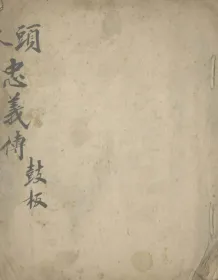 頭
忠義傳
鼓板